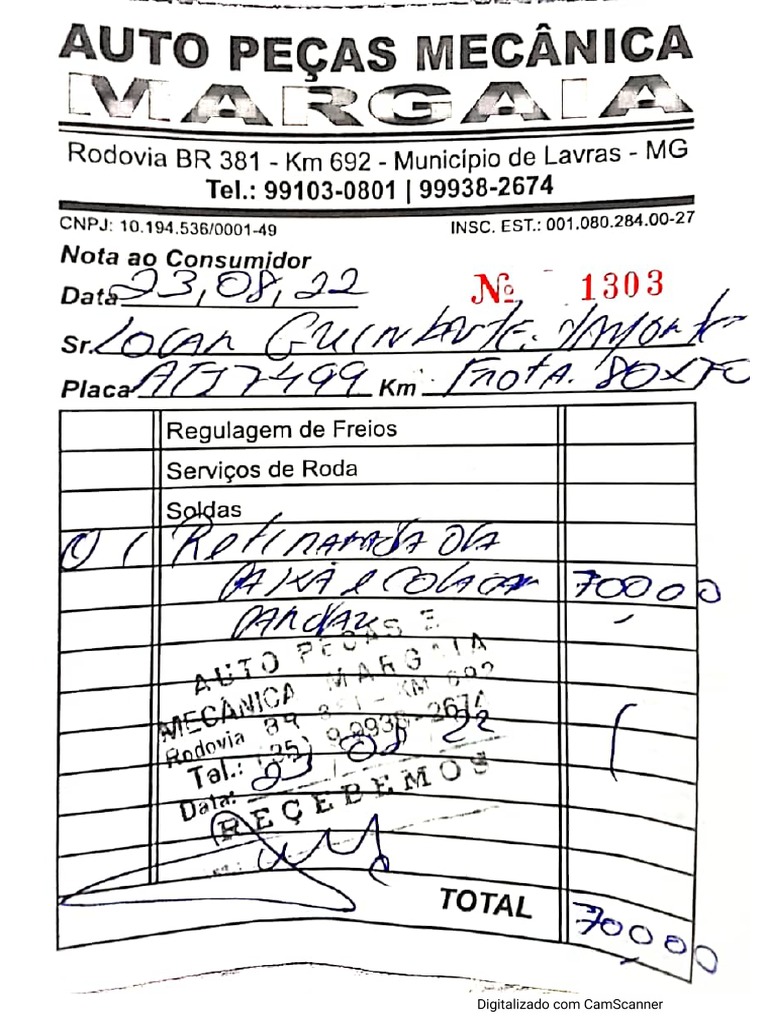 AUTO PEÇAS MECÂNICA
MARGAIA
Rodovia BR 381 - Km 692 - Município de Lavras - MG
Tel.: 99103-0801 | 99938-2674
CNPJ: 10.194.536/0001-49 INSC. EST.: 001.080.284.00-27
Nota ao Consumidor
Data 23,08,22 Nº 1303
Sr. LOCAR
Placa Km Frota.
Regulagem de Freios
Serviços de Roda
Soldas
01 Retirada da
CAIXA e COLOCAR 70000
CARDAN
AUTO PEÇAS E
MECÂNICA MARGAIA
Rodovia BR 381 - KM 692
Tel.: (35) 9.9938-2674
Data: 23 08 22
RECEBEMOS
TOTAL 70000
Digitalizado com CamScanner